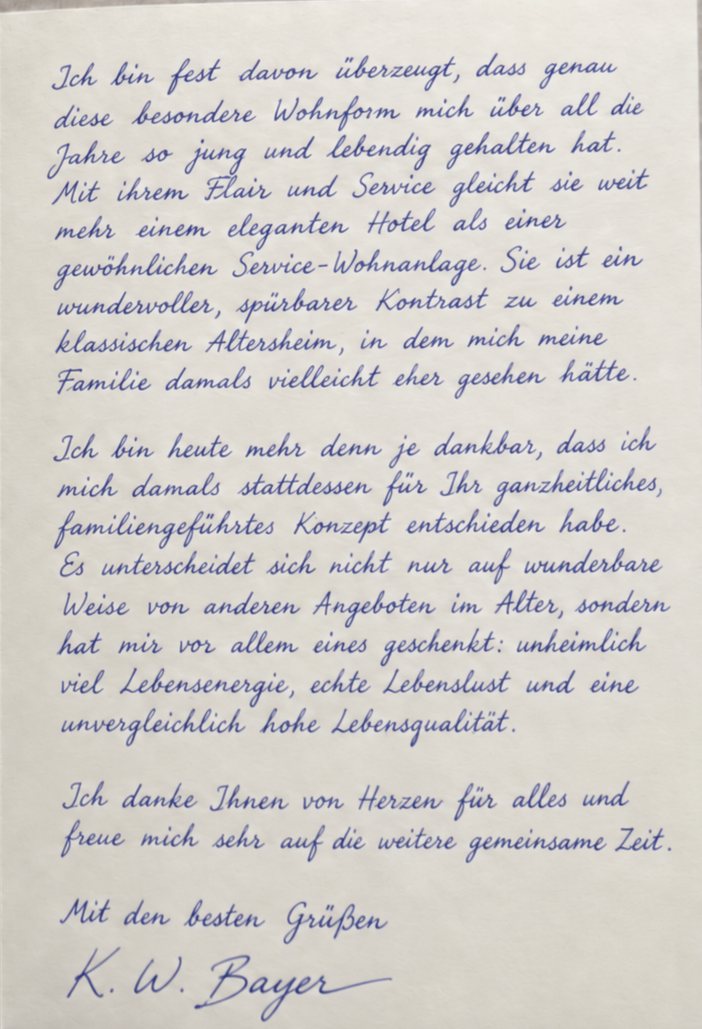 Ich bin fest davon überzeugt, dass genau
diese besondere Wohnform mich über all die
Jahre so jung und lebendig gehalten hat.
Mit ihrem Flair und Service gleicht sie weit
mehr einem eleganten Hotel als einer
gewöhnlichen Service-Wohnanlage. Sie ist ein
wundervoller, spürbarer Kontrast zu einem
klassischen Altersheim, in dem mich meine
Familie damals vielleicht eher gesehen hätte.
Ich bin heute mehr denn je dankbar, dass ich
mich damals stattdessen für Ihr ganzheitliches,
familiengeführtes Konzept entschieden habe.
Es unterscheidet sich nicht nur auf wunderbare
Weise von anderen Angeboten im Alter, sondern
hat mir vor allem eines geschenkt: unheimlich
viel Lebensenergie, echte Lebenslust und eine
unvergleichlich hohe Lebensqualität.
Ich danke Ihnen von Herzen für alles und
freue mich sehr auf die weitere gemeinsame Zeit.
Mit den besten Grüßen
K. W. Bayer